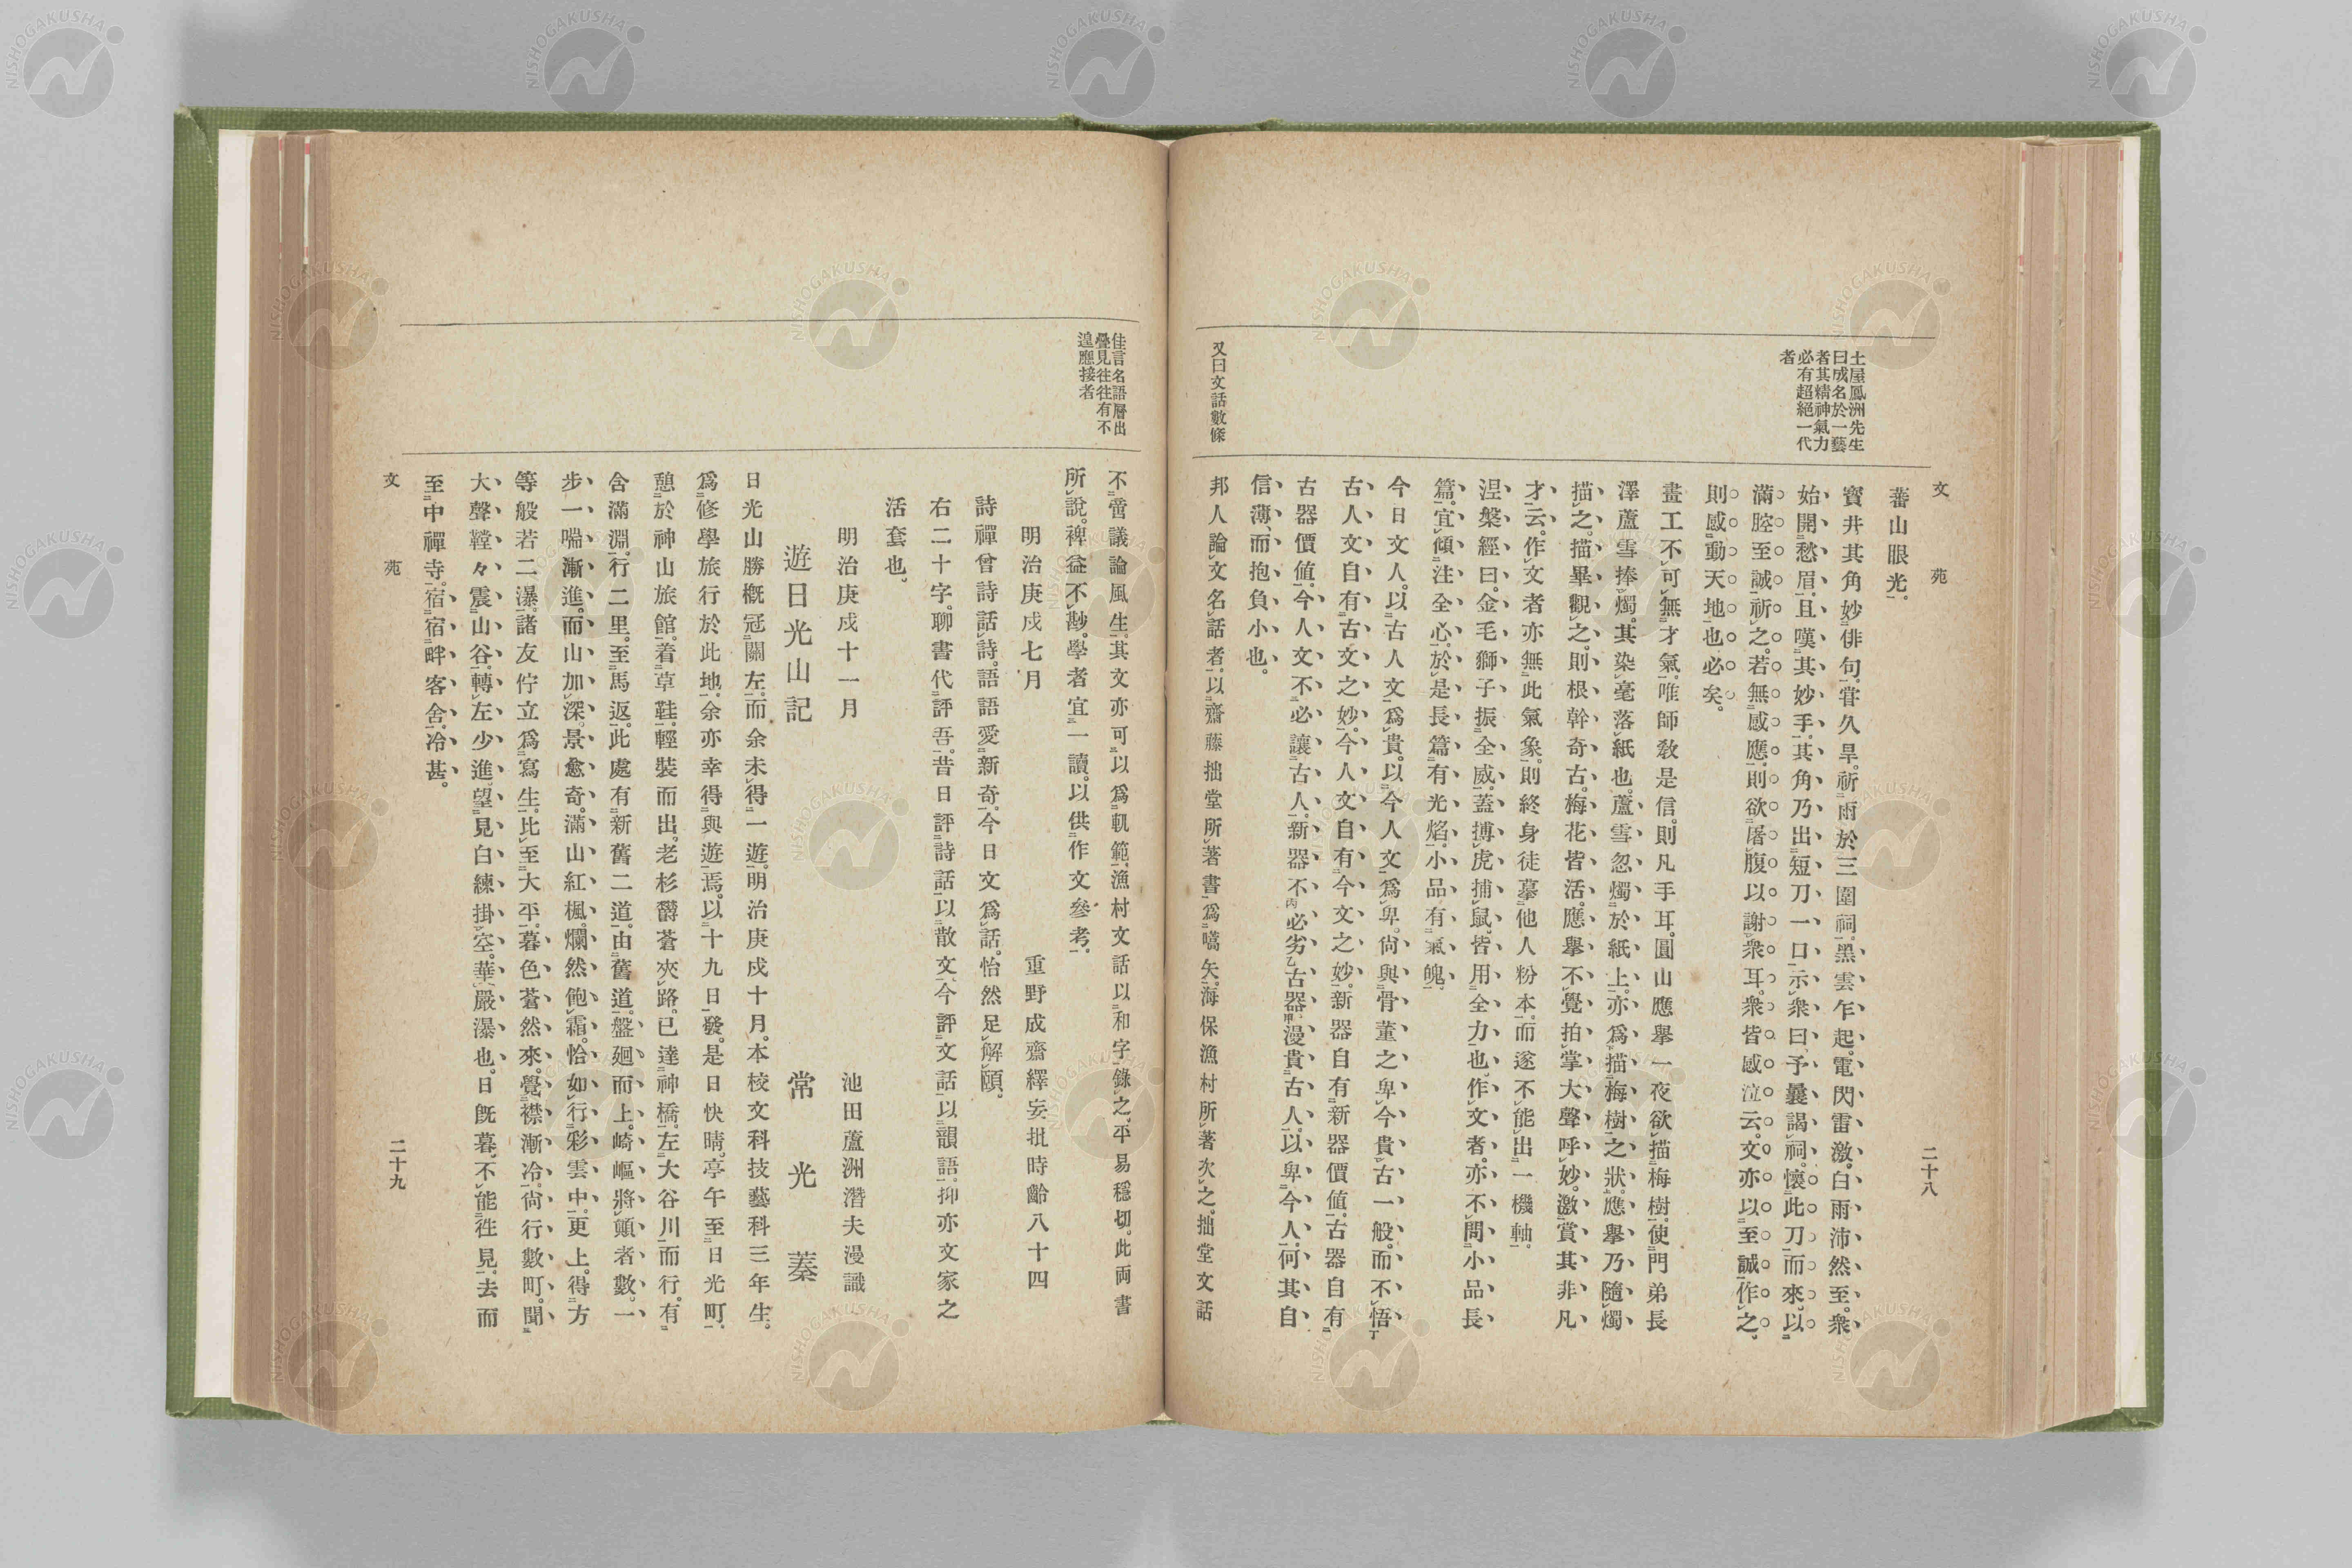 文苑
二十八
土屋鳳洲先生
曰成名於一藝
者其精神氣力
必有超絕一代
者
又曰文話數條
蕃山眼光。
寶井其角妙俳句。甞久旱。祈雨於三圍祠。黑雲乍起。電閃雷激。白雨沛然至。衆
始開愁眉。且嘆其妙手。其角乃出短刀一口。示衆曰、予曩謁祠。懷此刀而來。以
滿腔至誠祈之。若無感應。則欲屠腹以謝衆耳。衆皆感泣云。文亦以至誠作之。
則感動天地也必矣。
畫工不可無才氣。唯師敎是信。則凡手耳。圓山應擧一夜欲描梅樹。使門弟長
澤蘆雪捧燭。其染毫落紙也。蘆雪忽燭於紙上。亦爲描梅樹之狀。應擧乃隨燭
描之。描畢觀之。則根幹奇古。梅花皆活。應擧不覺拍掌大聲呼妙。激賞其非凡
才云。作文者亦無此氣象。則終身徒摹他人粉本。而遂不能出一機軸。
涅槃經曰。金毛獅子振全威。蓋搏虎捕鼠。皆用全力也。作文者。亦不問小品長
篇。宜傾注全心。於是長篇有光焰。小品有氣魄。
今日文人。以古人文爲貴。以今人文爲卑。尙與骨董之卑今貴古一般。而不悟
古人文自有古文之妙。今人文自有今文之妙。新器自有新器價値。古器自有
古器價値。今人文不必讓古人。新器不必劣古器。漫貴古人。以卑今人。何其自
信薄、而抱負小也。
邦人論文名話者。以齋藤拙堂所著書爲嚆矢。海保漁村所著次之。拙堂文話
佳言名語層出
疊見往往有不
遑應接者
不啻議論風生。其文亦可以爲軌範。漁村文話以和字錄之。平易穩切。此両書
所說。裨益不尠。學者宜一讀。以供作文參考。
明治庚戌七月　重野成齋繹妄批時齡八十四
詩禪曾詩話詩。語語愛新奇。今日文爲話。怡然足解頤。
右二十字。聊書代評吾。昔日評詩話以散文、今評文話以韻語。抑亦文家之
活套也。
明治庚戌十一月　池田蘆洲潛夫漫識
遊日光山記　常光蓁
日光山勝槪冠關左。而余未得一遊。明治庚戌十月。本校文科技藝科三年生。
爲修學旅行於此地。余亦幸得與遊焉。以十九日發。是日快晴。亭午至日光町。
憩於神山旅館。着草鞋。輕裝而出。老杉欝蒼夾路。已達神橋。左大谷川而行。有
含滿淵。行二里。至馬返。此處有新舊二道。由舊道。盤廻而上。崎嶇將顚者數。一
步一喘漸進。而山加深。景愈奇。滿山紅楓。爛然飽霜。恰如行彩雲中。更上。得方
等般若二瀑。諸友佇立爲寫生。比至大平。暮色蒼然來。覺襟漸冷。尙行數町。聞
大聲鞺々震山谷。轉左少進。望見白練掛空。華嚴瀑也。日旣暮。不能徃見。去而
至中禪寺。宿宿畔客舍。冷甚。
文苑
二十九